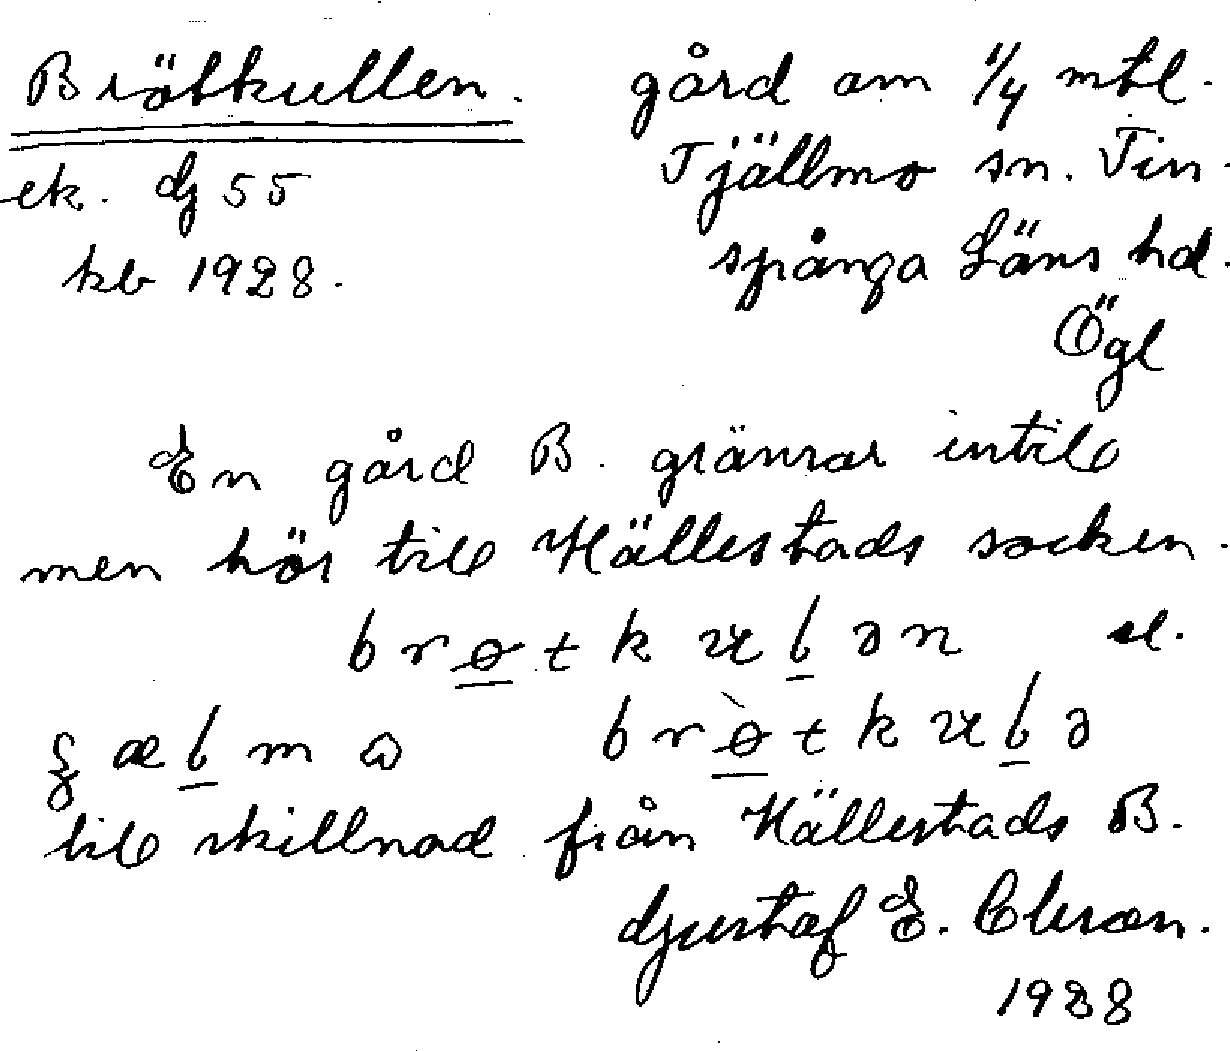 Brötkullen. gård om 1/4 mtl.
ek. G 55 Tjällmo sn. Fin-
kb 1928. spånga Läns hd.
Ögl
En gård B. gränsar intill
men hör till Hällestads socken.
brøtkułən el.
brø̀tkułə
till skillnad från Hällestads B.
Gustaf E. Olsson.
1928